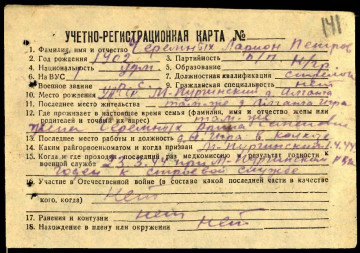 141
УЧЕТНО-РЕГИСТРАЦИОННАЯ КАРТА №
1. Фамилия, имя и отчество Черемных Ларион Петров
2. Год рождения 1902 3. Партийность б/п
4. Национальность удм. 5. Образование н/ср
6. № ВУС 1 7. Должностная квалификация стрелок
8. Военное звание 9. Гражданская специальность нет
10. Место рождения УАССР М-Пургинский д.
11. Последнее место жительства там-же д.
12. Где проживает в настоящее время семья (фамилия, имя и отчество жены или
родителей и точный их адрес) там-же
жена Черемных Анна
13. Последнее место работы и должность в колхозе
14. Каким райгорвоенкоматом и когда призван М-Пургинский 1.4.44
15. Когда и где проходил последний раз медкомиссию и результат годности к
военной службе 23.3.44 при М-Пургинский РВК
годен к строевой службе
16. Участие в Отечественной войне (в составе какой последней части в качестве
кого, когда) Нет
17. Ранения и контузии нет
18. Нахождение в плену или окружении нет